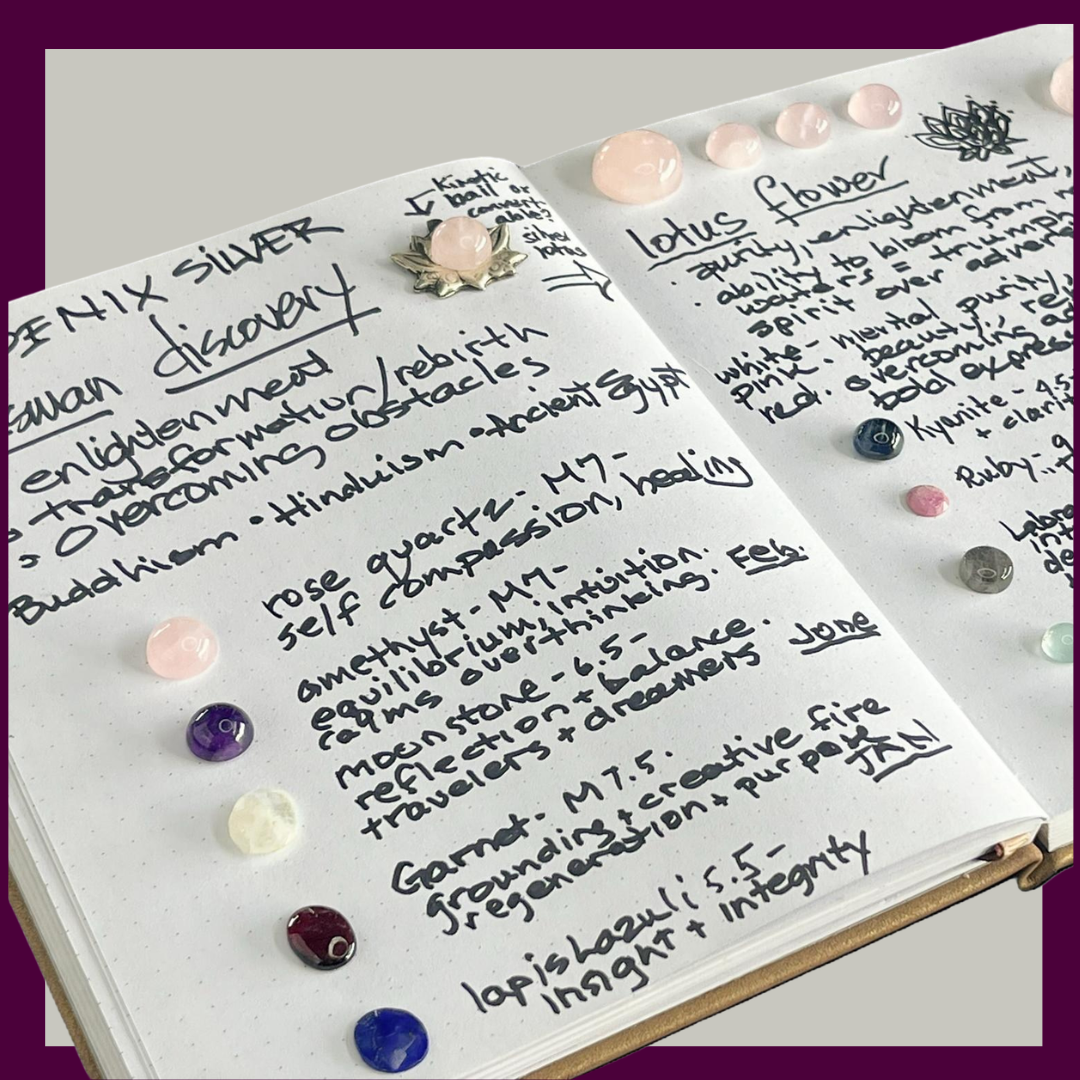 ENIX SILVER
discovery
swan
enlightenment
transformation/rebirth
overcoming obstacles
Buddhism • Hinduism • Ancient Egypt
Kinetic
ball or
convert-
able?
silver
lotus
rose quartz - M7 -
self compassion, healing
amethyst - M7 -
equilibrium, intuition.
calms overthinking. Feb.
moonstone - 6.5 -
reflection + balance.
travelers + dreamers
June
Garnet - M 7.5.
grounding + creative fire
regeneration + purpose
JAN
lapis lazuli 5.5 -
insight + integrity
lotus flower
purity, enlightenment,
• ability to bloom from
waters = triumph
spirit over
white - mental purity,
pink. beauty,
red. overcoming
bold
Kyanite - 4.5
+
Ruby..